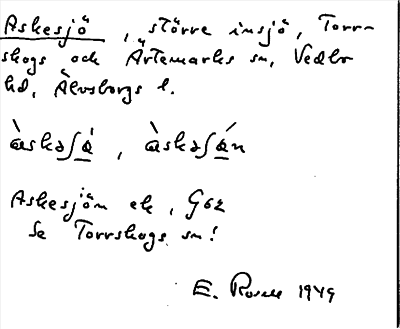 Askesjö, större insjö, Torr-
skogs och Ärtemarks sn, Vedbo
hd, Älvsborgs l.
àskəʃö́, àskəʃö́n
Askesjön ek, G62
Se Torrskogs sn!
E. 1949